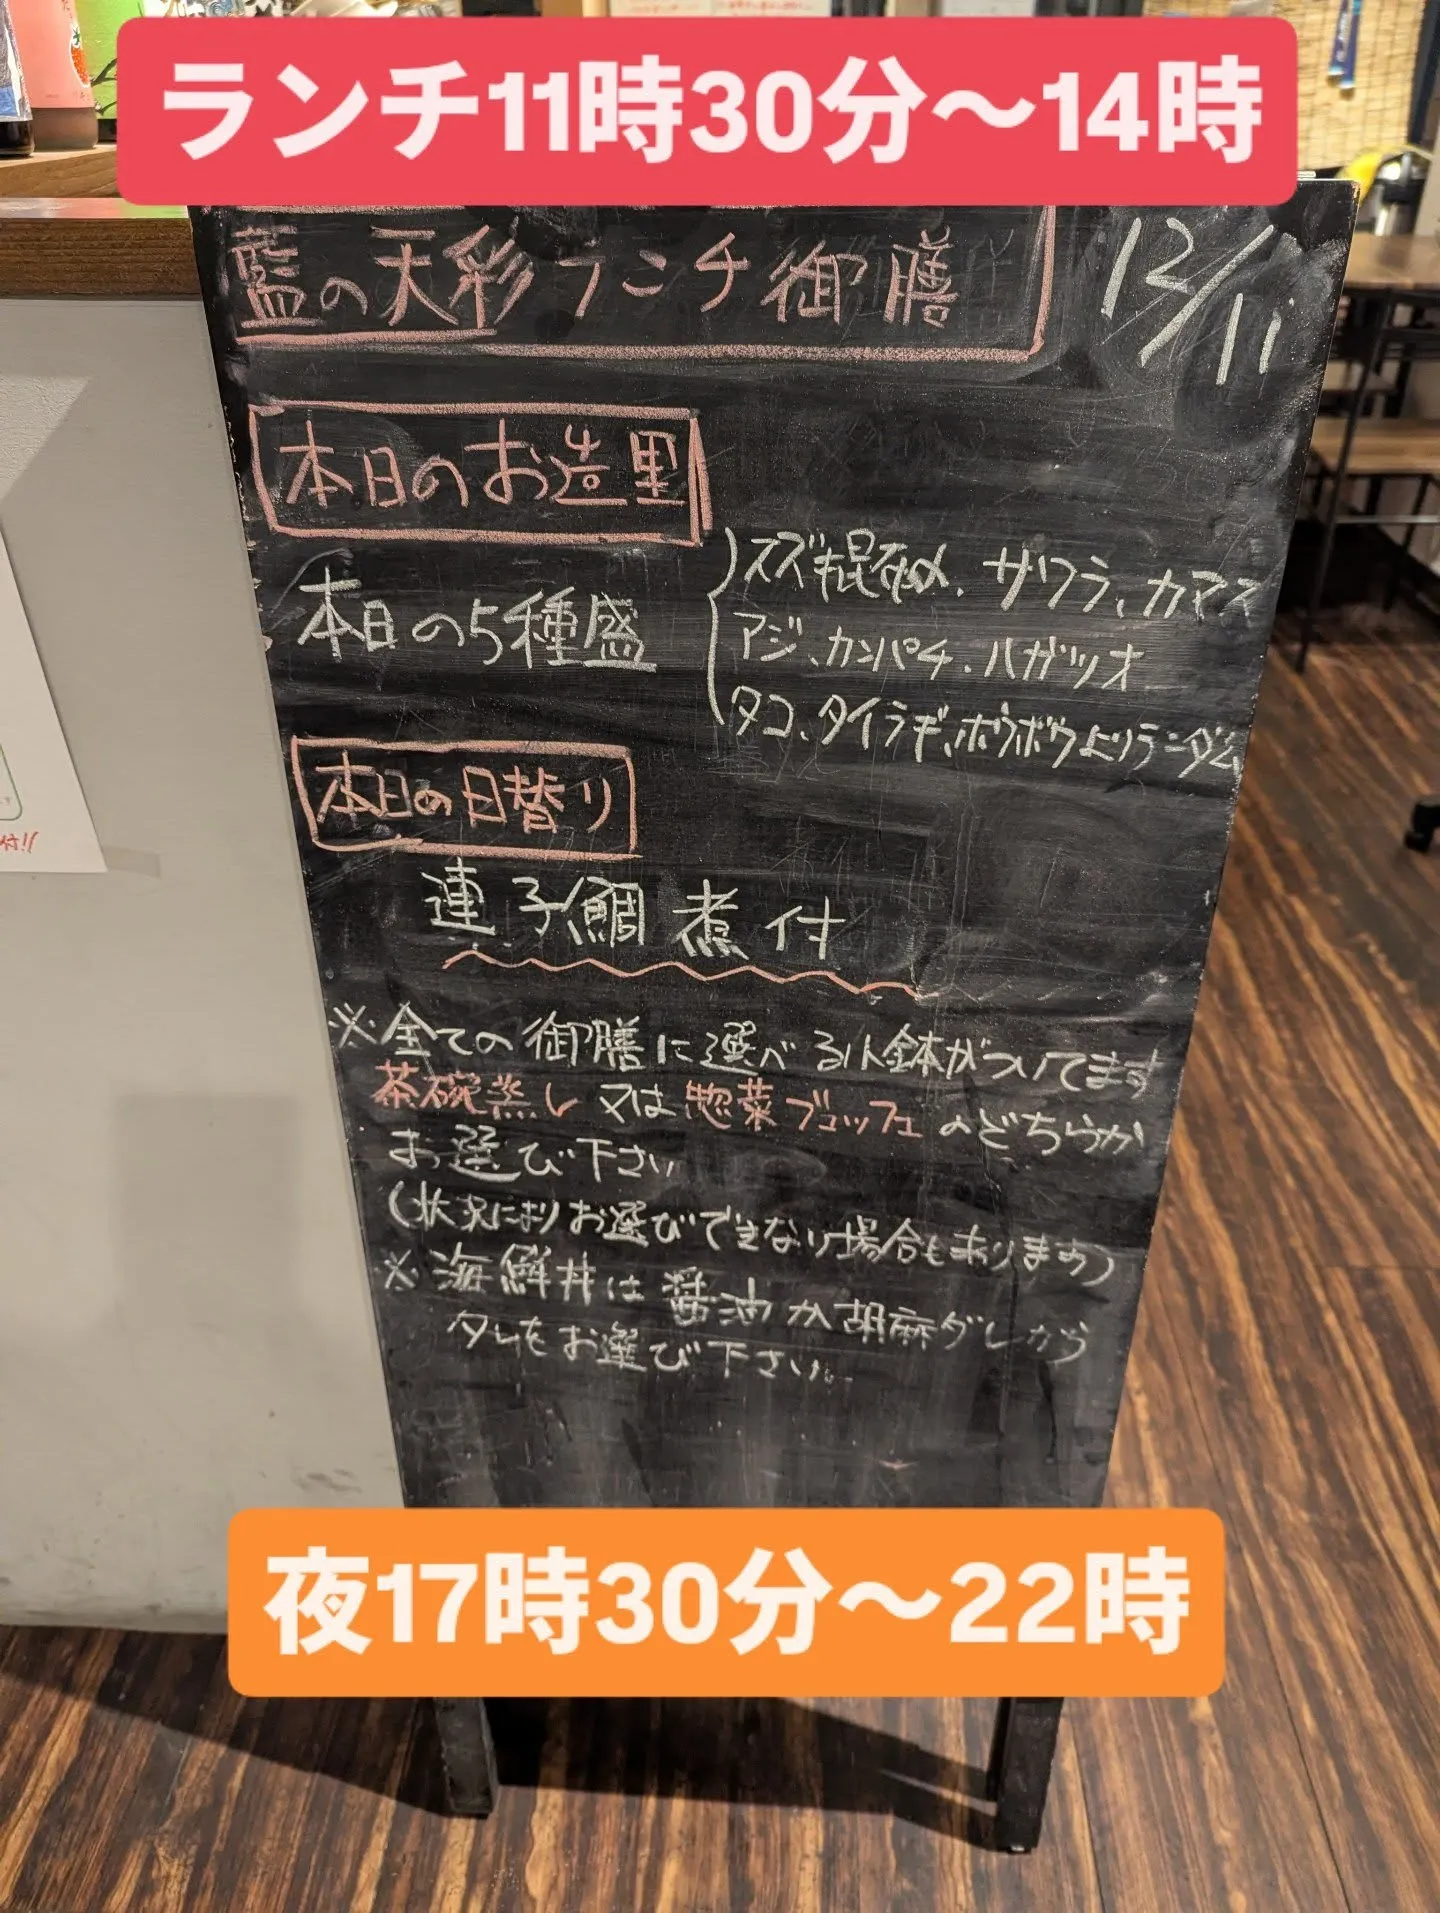 ランチ11時30分〜14時
藍の天彩ランチ御膳
12/11
本日のお造里
本日の5種盛
スズキ昆布〆、サワラ、カマス
アジ、カンパチ、ハガツオ
タコ、タイラギ、ホウボウよりランダム
本日の日替り
連子鯛煮付
※全ての御膳に選べる小鉢がついてます
茶碗蒸し又は惣菜ブュッフェのどちらか
お選び下さい
(状況によりお選びできない場合もあります)
※海鮮丼は醤油か胡麻ダレから
タレをお選び下さい。
夜17時30分〜22時